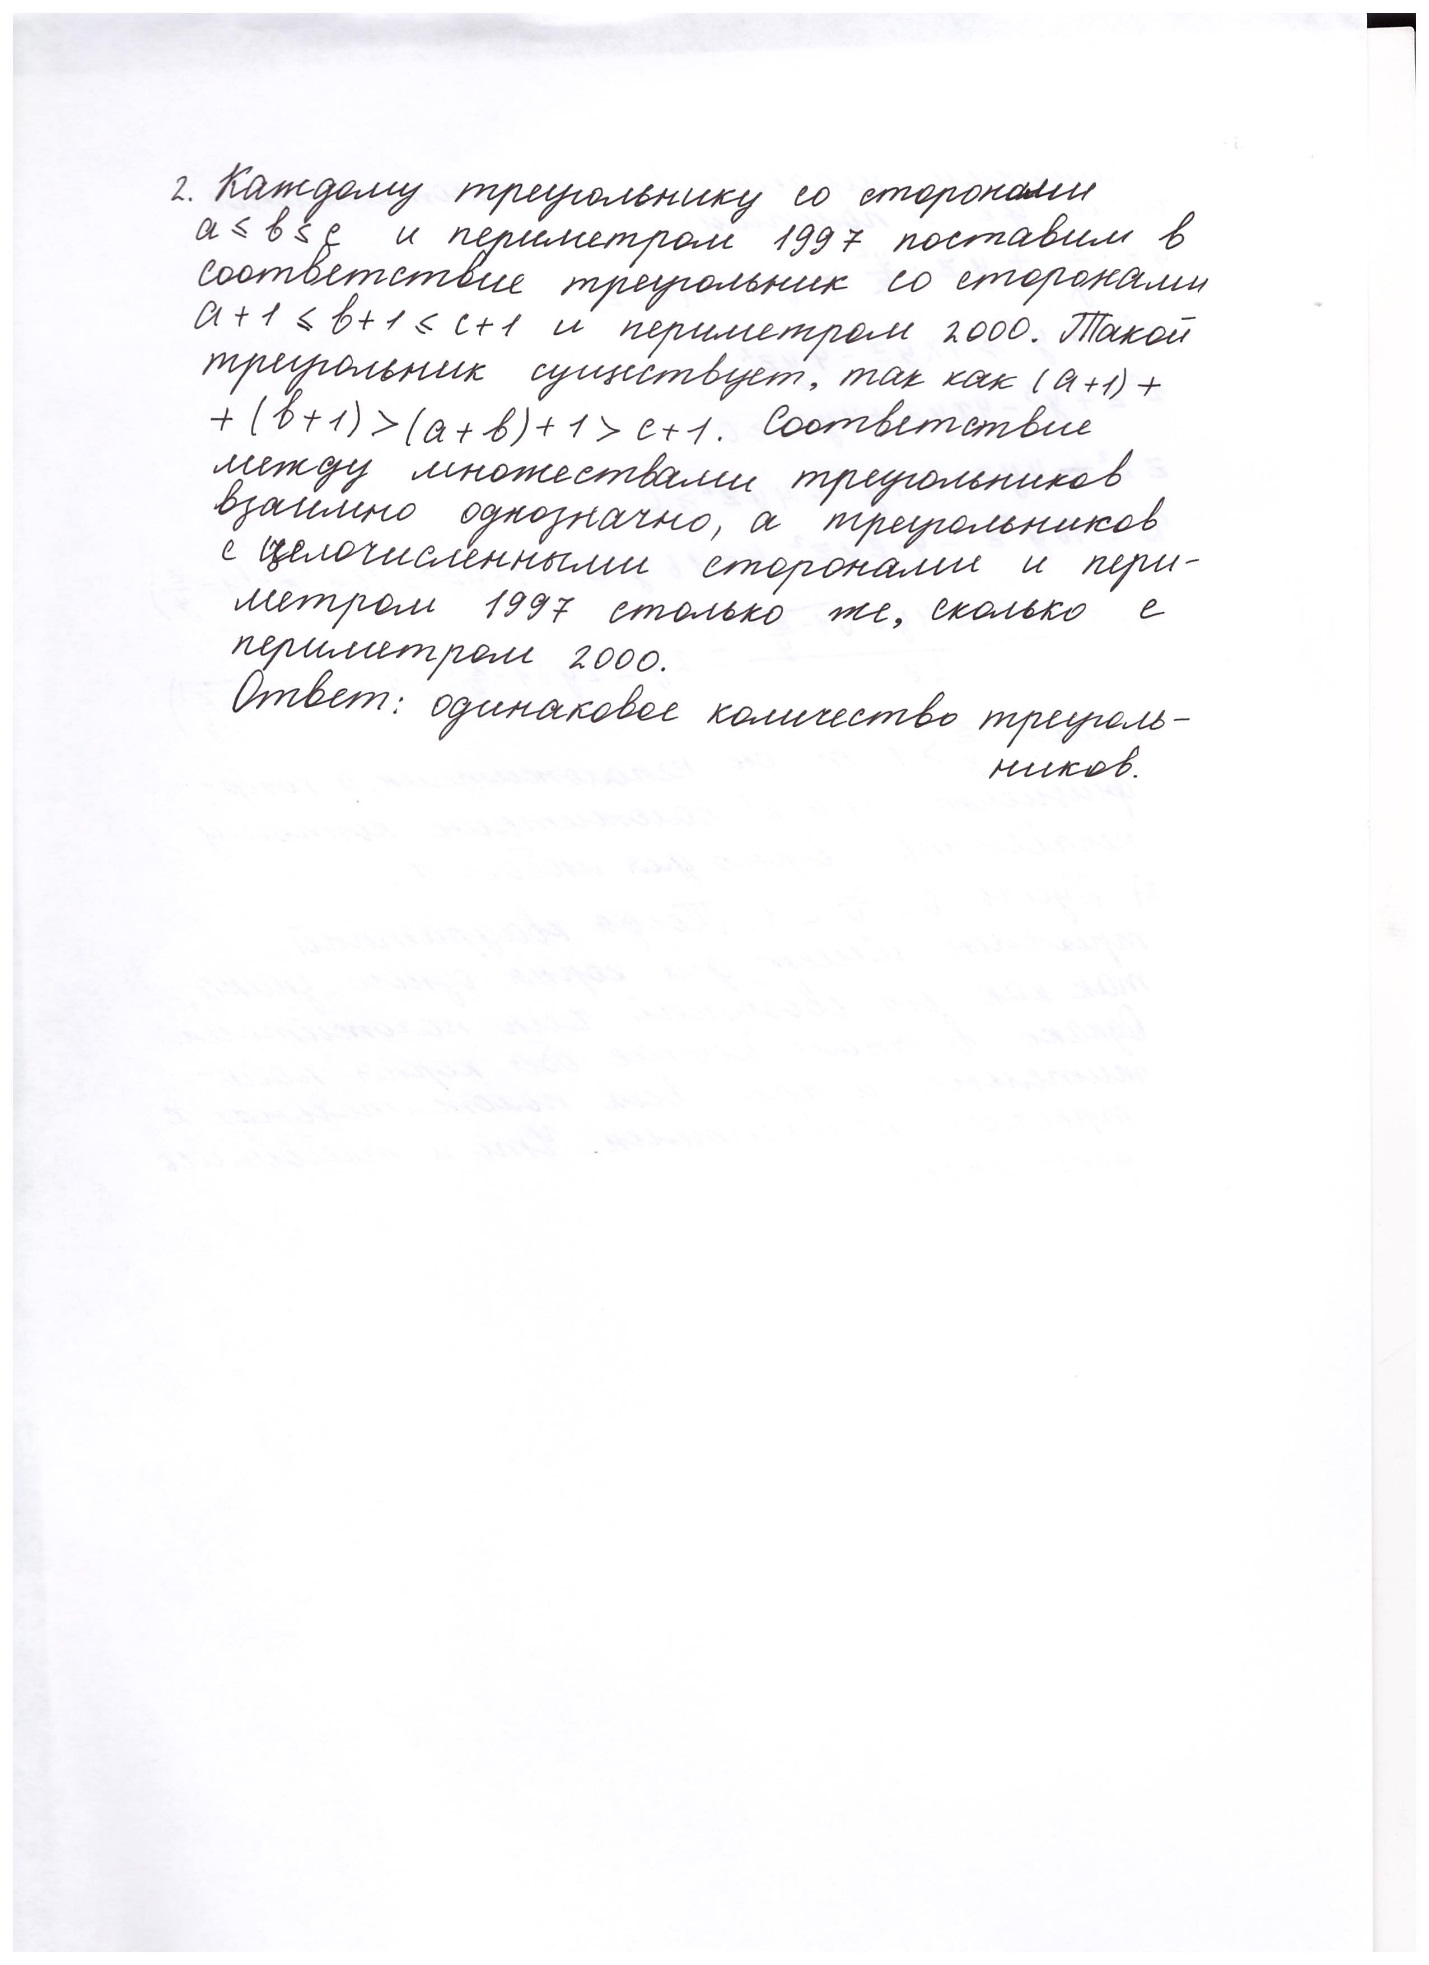 2. Каждому треугольнику со сторонами
a ≤ b ≤ c и периметром 1997 поставим в
соответствие треугольник со сторонами
a+1 ≤ b+1 ≤ c+1 и периметром 2000. Такой
треугольник существует, так как (a+1)+
+(b+1)>(a+b)+1>c+1. Соответствие
между множествами треугольников
взаимно однозначно, а треугольников
с целочисленными сторонами и пери-
метром 1997 столько же, сколько с
периметром 2000.
Ответ: одинаковое количество треуголь-
ников.